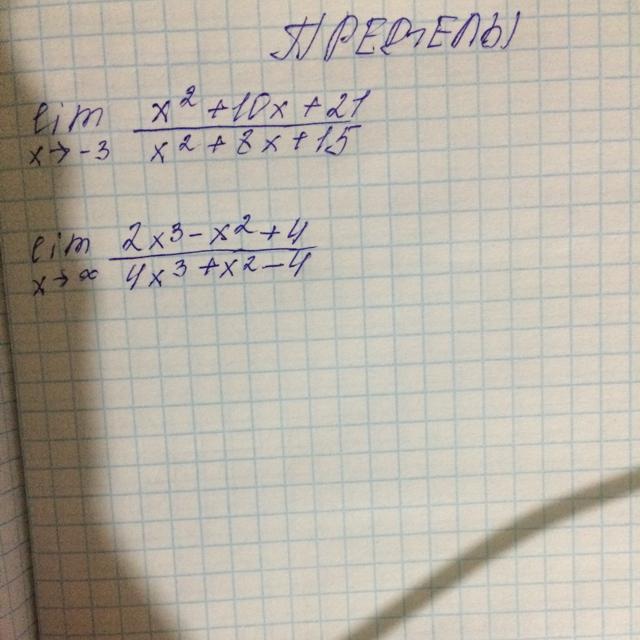 ПРЕДЕЛЫ
lim x²+10x+21
x→-3 x²+8x+15
lim 2x³-x²+4
x→∞ 4x³+x²-4